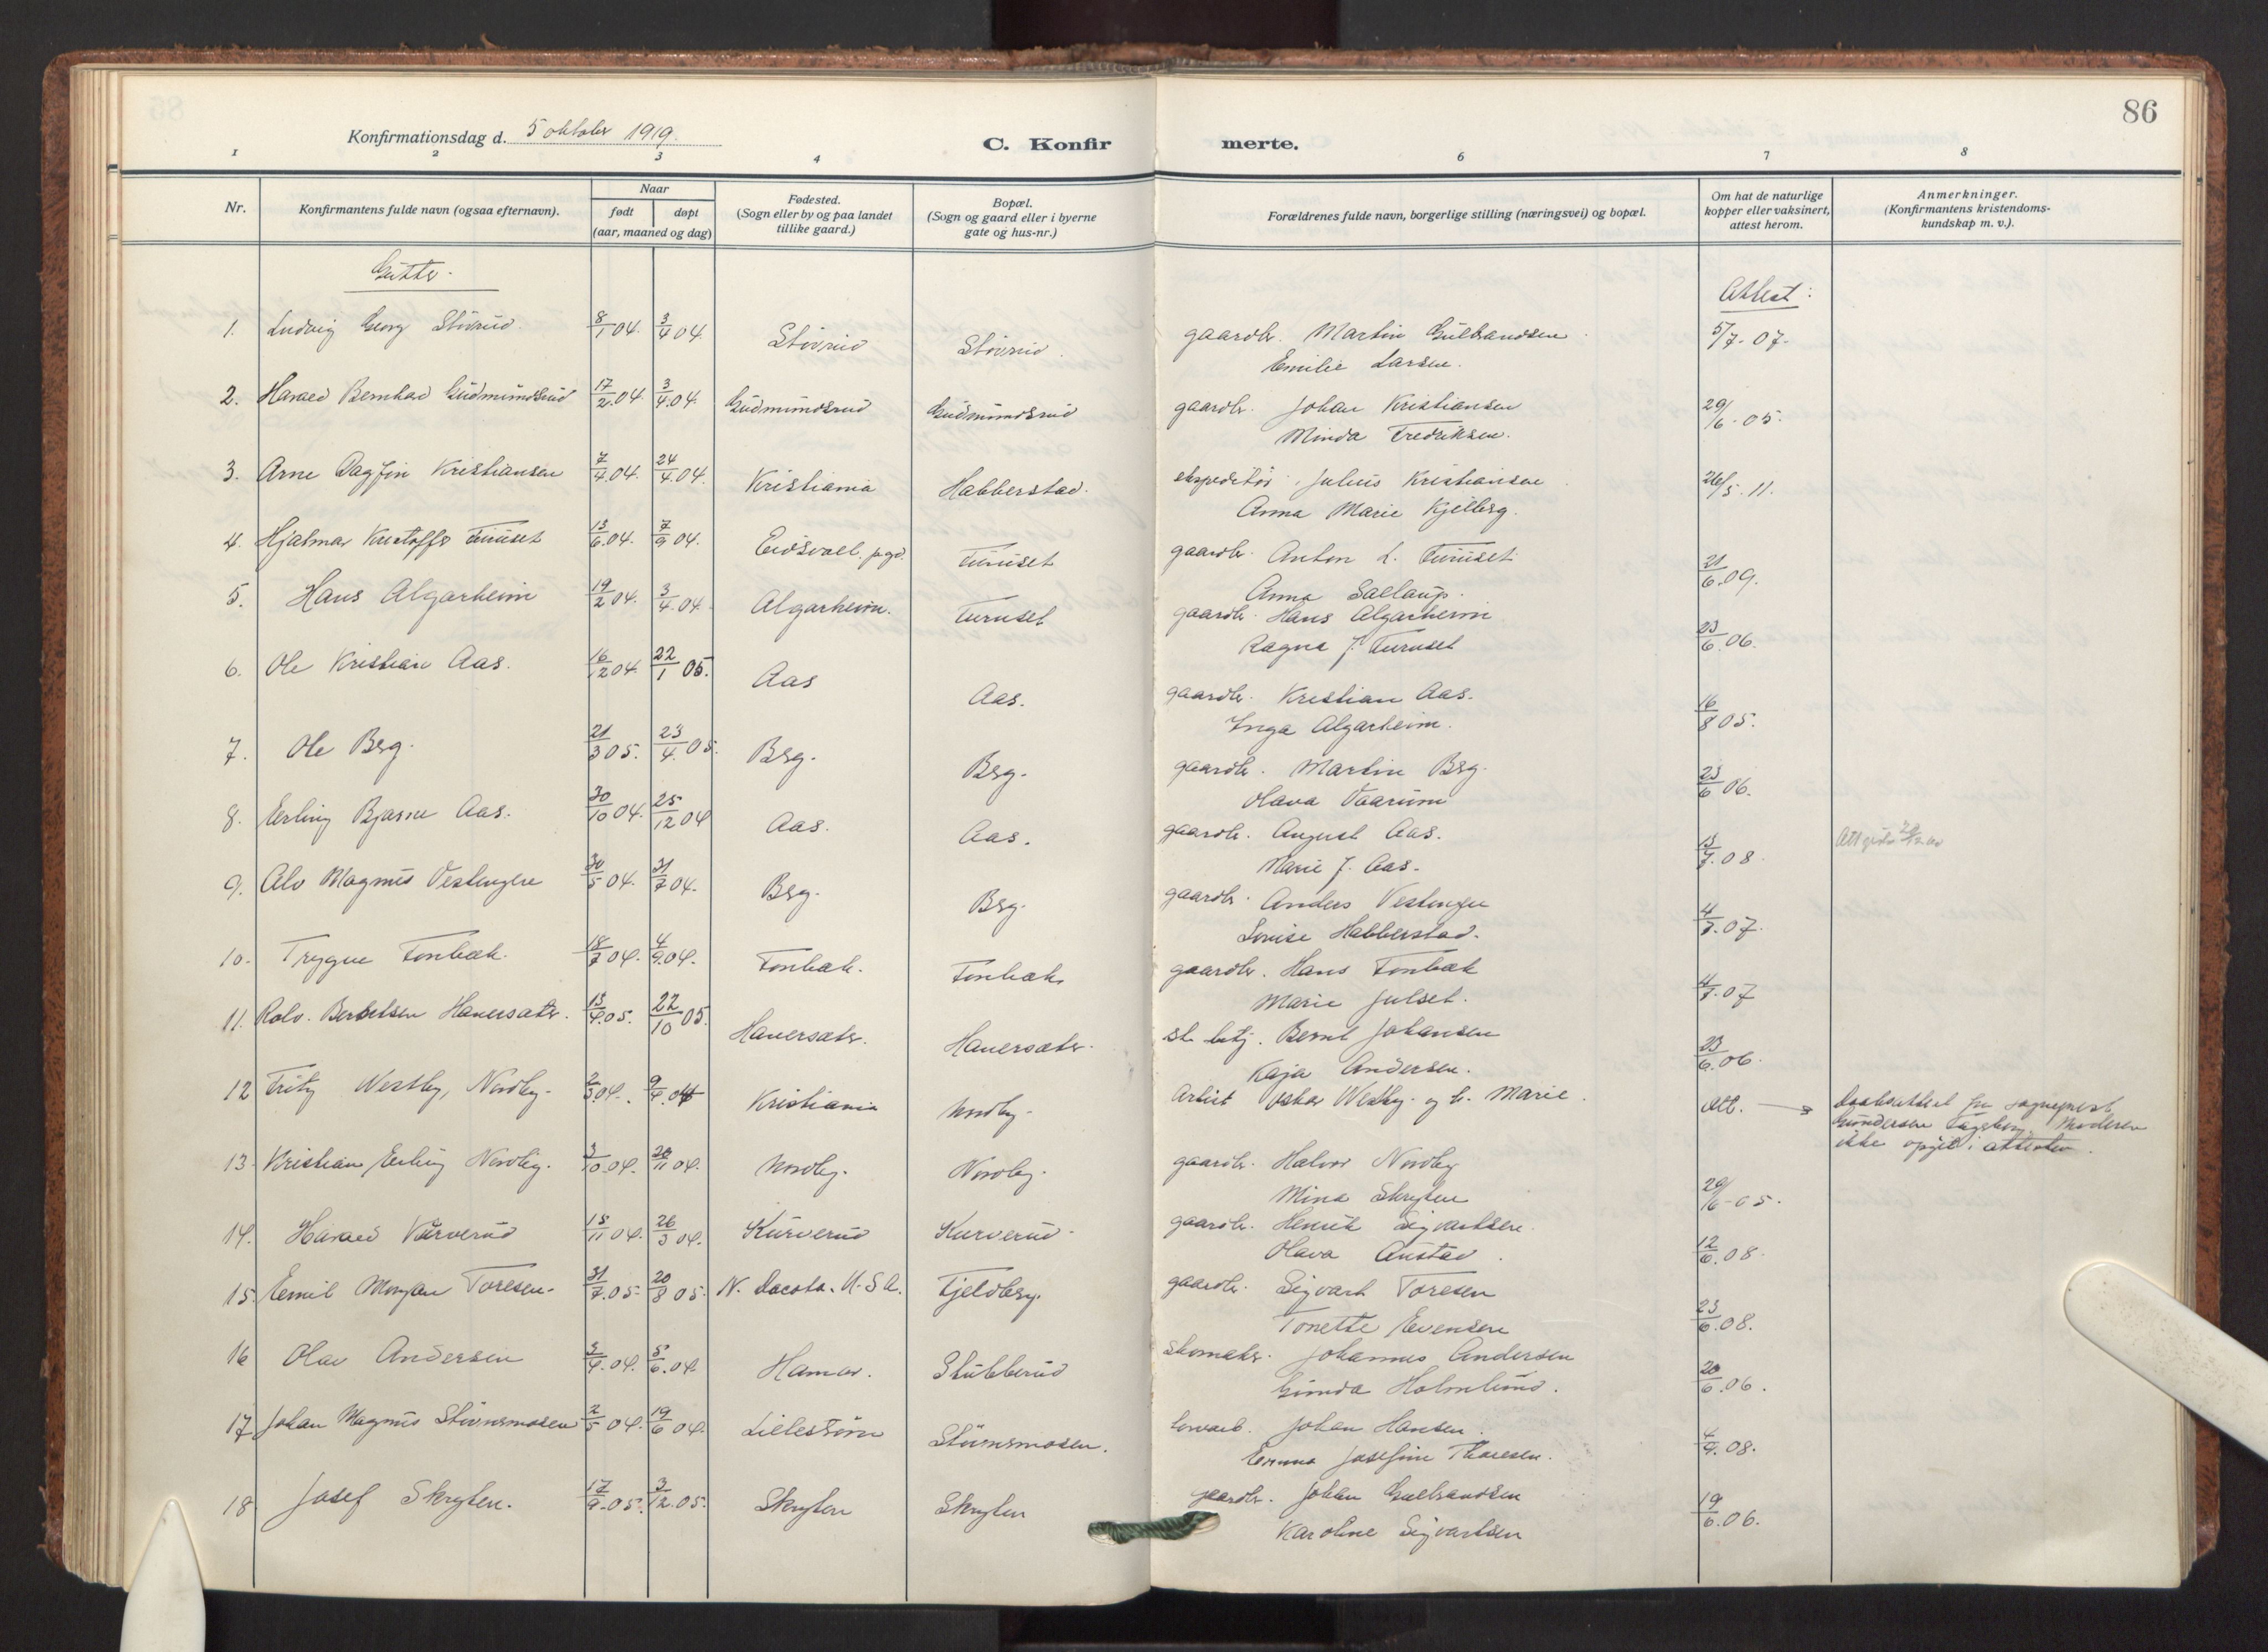 86
Konfirmationsdag d. 5 oktober 1919.
C. Konfirmerte.
1 2 3 4 6 7 8
Nr.
Konfirmantens fulde navn (ogsaa efternavn).
Naar
født døpt
(aar, maaned og dag)
Fødested.
(Sogn eller by og paa landet
tillike gaard.)
Bopæl.
(Sogn og gaard eller i byerne
gate og hus-nr.)
Forældrenes fulde navn, borgerlige stilling (næringsvei) og bopæl.
Om hat de naturlige
kopper eller vaksinert,
attest herom.
Anmerkninger.
(Konfirmantens kristendoms-
kundskap m. v.).
Gutter.
Attest:
1. Ludvig Georg Störrud 8/1 04. 3/4 04. Störrud Störrud. gaardbr. Martin Gulbrandsen 5/7-07.
Emilie Larsen.
2. Harald Bernhard Gudmundsrud 17/2.04. 3/4.04. Gudmundsrud Gudmundsrud gaardbr. Johan Kristiansen 29/6-05.
Minda Fredriksen.
3. Arne Dagfin Kristiansen 7/4.04. 24/4.04. Kristiania Habberstad. ekspeditör Julius Kristiansen 26/5.11.
Anna Marie Kjelberg.
4. Hjalmar Kristoffer Furuset 13/6.04. 7/9 04. Eidsvoll pgd. Furuset gaardbr. Anton L. Furuset 21/6.09.
Anna
5. Hans Algarheim 19/2 04. 3/4.04. Algarheim. Furuset gaardbr. Hans Algarheim 23/6.06.
Ragna J. Furuset
6. Ole Kristian Aas. 16/12 04. 22/1 05. Aas Aas. gaardbr. Kristian Aas. 16/8 05.
Inga Algarheim.
7. Ole Berg. 21/3 05. 23/4.05. Berg. Berg. gaardbr. Martin Berg. 23/6 06.
Olava Vaarum
8. Erling Bjarne Aas. 30/10 04. 25/12 04 Aas. Aas. gaardbr. August Aas. 13/7.08.
Marie J. Aas.
9. Alv Magnus Vestengen 30/5 04. 31/7 04. Berg. Berg. gaardbr. Anders Vestengen 4/7.07.
Louise Habberstad.
10. Trygve Fonbæk. 18/7 04. 4/9.04. Fonbæk. Fonbæk gaardbr. Hans Fonbæk 4/7.07
Marie Julset.
11. Rolv. Berntsen Hauersæter. 13/4.05. 22/10 05. Hauersæter. Hauersæter. st. betj. Bernt Johansen 23/6.06.
Kaja Andersen.
12 Fritz Westby, Nordby. 2/3.04. 9/4.04 Kristiania Nordby. Artist Oskar Westby og h. Marie. Att. → Daabsattest fra sogneprest
Gundersen Marie
ikke opgit i attesten.
13. Kristian Erling Nordby. 3/10.04. 20/11 04. Nordby. Nordby. gaardbr. Halvor Nordby 29/6-05.
Mina Skryten
14. Harald Kurverud 13/11 04. 26/3 04. Kurverud Kurverud. gaardbr. Henrik Sigvartsen. 12/6.08.
Olava Austad.
15. Emil Morgan Toresen. 31/7.05. 20/8 05. N. Dacota. U.S.A. Fjeldberg. gaardbr. Sigvart Toresen 23/6.08.
Tonette Evensen
16 Olav Andersen 3/4.04. 5/6.04. Hamar. Stubberud Skomaker. Johannes Andersen 20/6.06.
Gunda Holmlund.
17 Johan Magnus Stornsmosen 2/5 04. 19/6 04. Lillestrøm Stornsmosen. Johan Hansen. 4/9.08.
Emma Josefine Thoresen.
18 Josef Skryten. 17/9.05. 3/12.05. Skryten Skryten gaardbr. Johan Gulbrandsen 19/6.06.
Karoline Sigvartsen